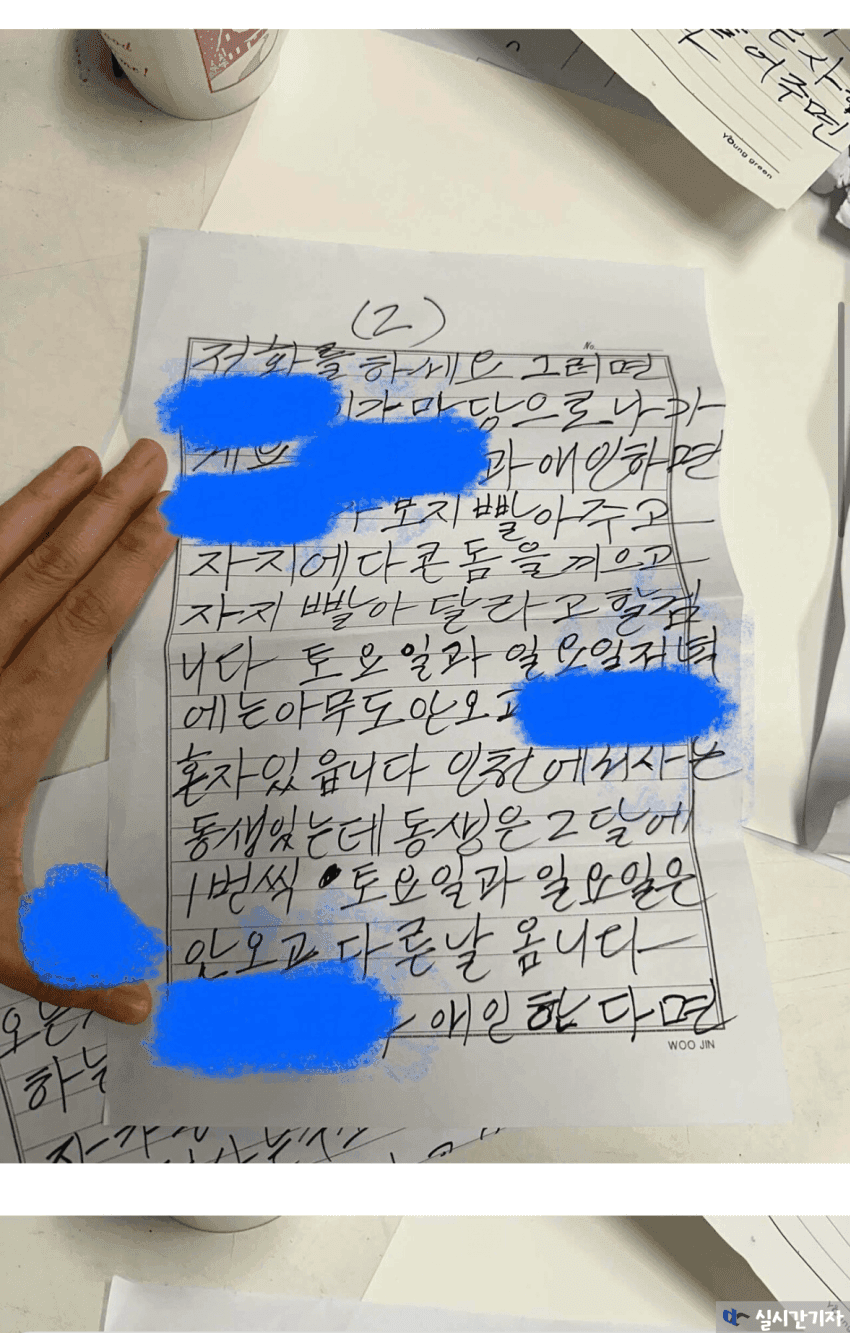 어주면
young green
(2)
No.
전화를 하세요 그러면
가 마당으로 나가
과 애인하면
보지 빨아주고
자지에다 콘돔을 끼우고
자지 빨아 달라고 할겁
니다 토요일과 일요일저녁
에는 아무도 안오고
혼자 있읍니다 인천에서 사는
동생있는데 동생은 2달에
1번씩 토요일과 일요일은
안오고 다른날 옵니다
애인 한다면
WOO JIN
하는
실시간기자